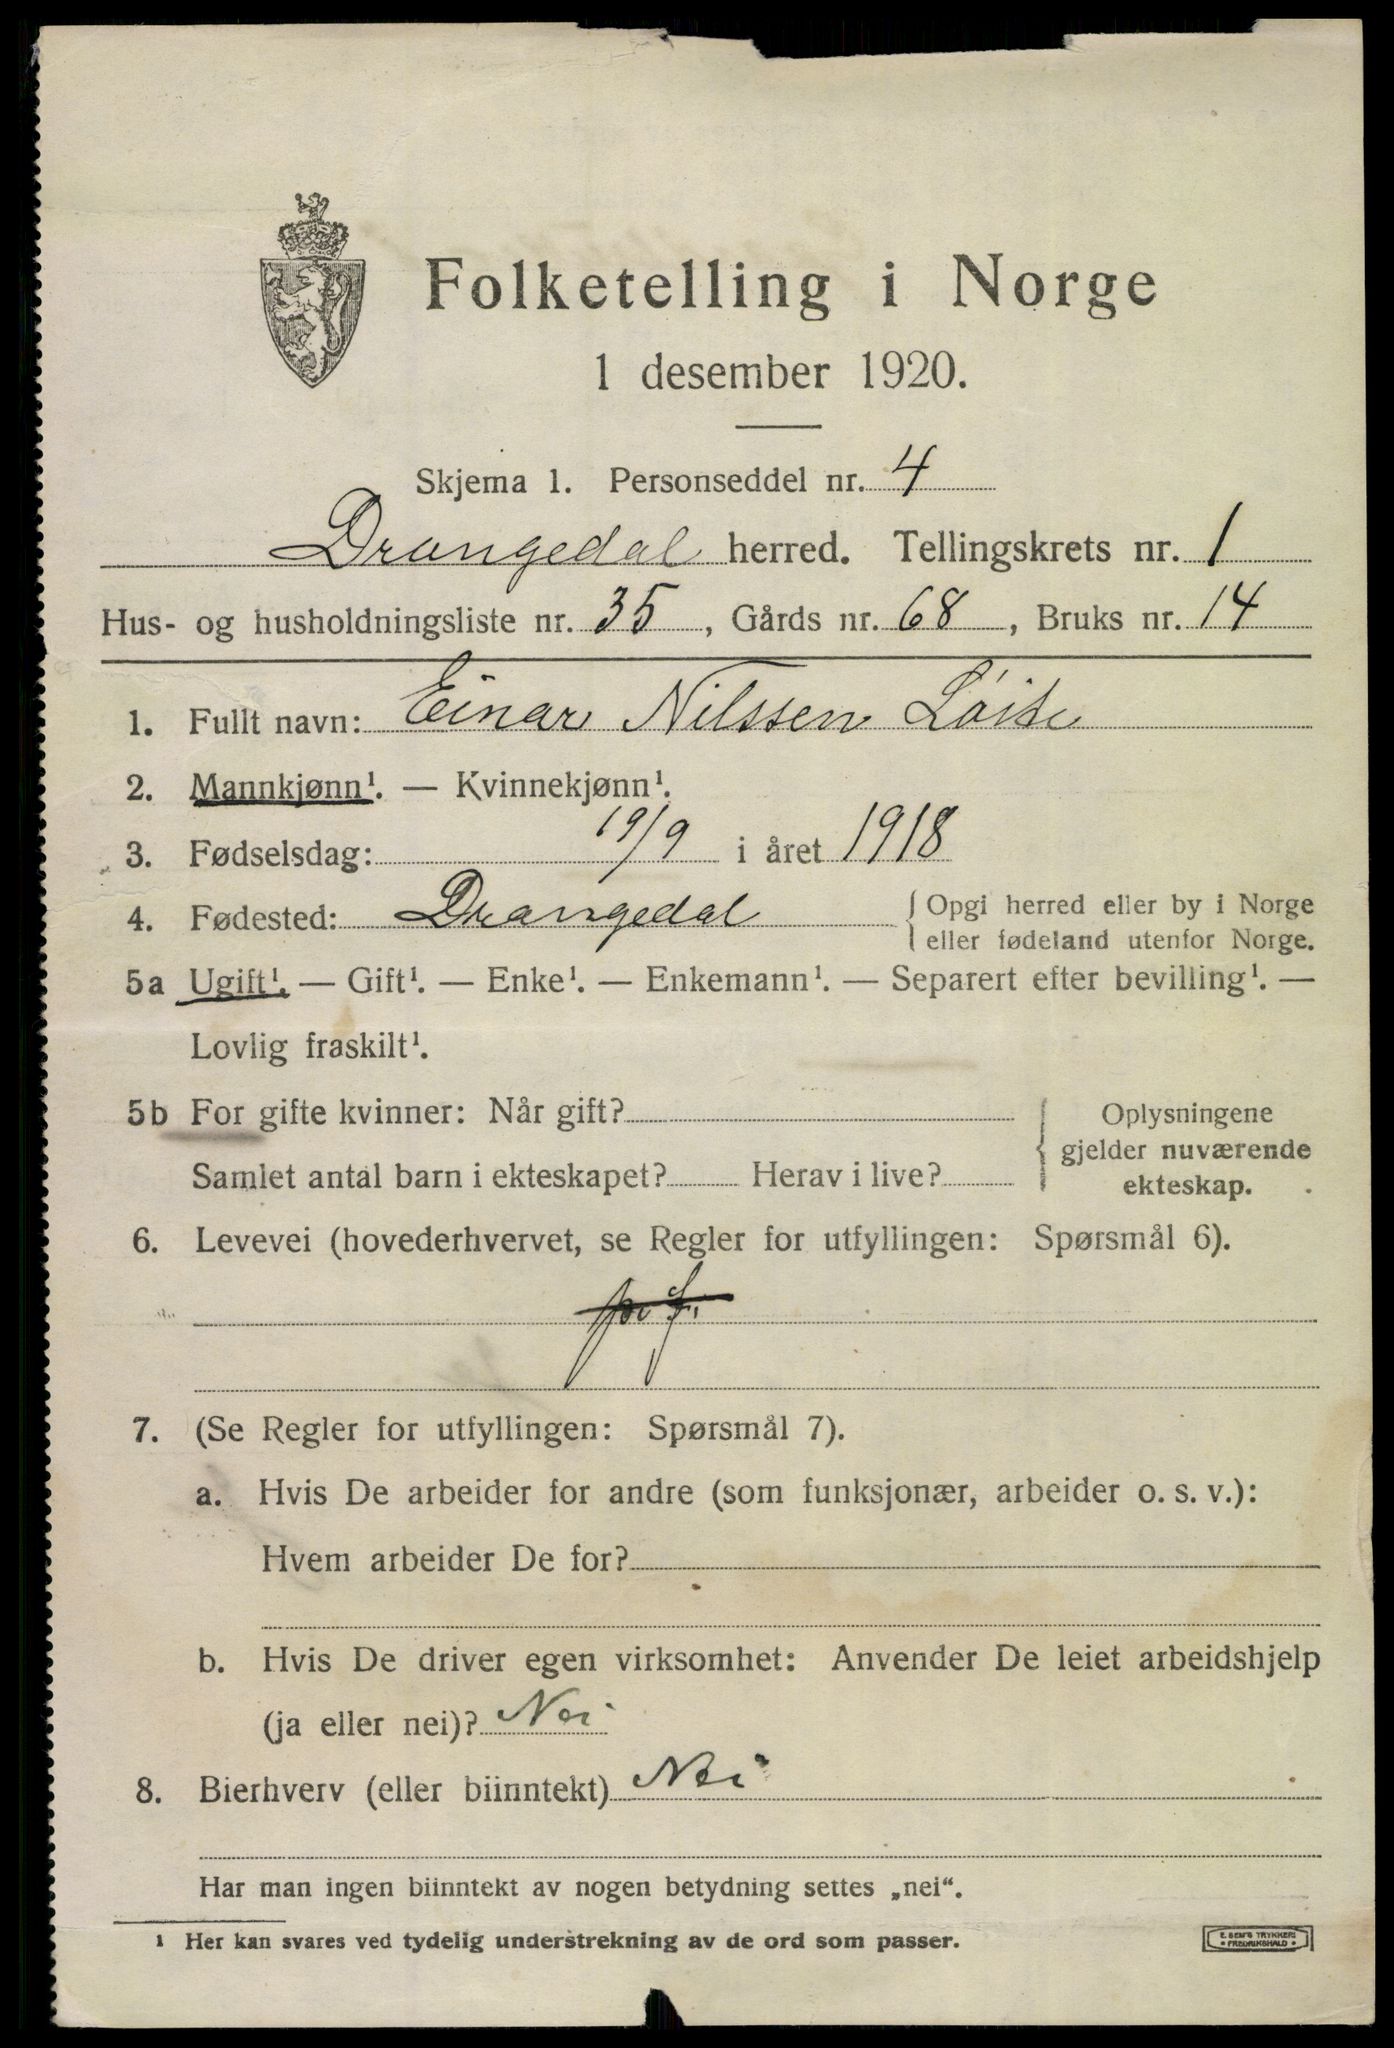 Folketelling i Norge
1 desember 1920.
Skjema 1. Personseddel nr. 4
Drangedal herred. Tellingskrets nr. 1
Hus- og husholdningsliste nr. 35, Gårds nr. 68, Bruks nr. 14
1. Fullt navn: Einar Nilssen Löite
2. Mannkjønn¹. — Kvinnekjønn¹.
3. Fødselsdag: 19/9 i året 1918
4. Fødested: Drangedal { Opgi herred eller by i Norge
eller fødeland utenfor Norge.
5a Ugift¹. — Gift¹. — Enke¹. — Enkemann¹. — Separert efter bevilling¹. —
Lovlig fraskilt¹.
5b For gifte kvinner: Når gift?
Samlet antal barn i ekteskapet? Herav i live?
{ Oplysningene
gjelder nuværende
ekteskap.
6. Levevei (hovederhvervet, se Regler for utfyllingen: Spørsmål 6).
7. (Se Regler for utfyllingen: Spørsmål 7).
a. Hvis De arbeider for andre (som funksjonær, arbeider o. s. v.):
Hvem arbeider De for?
b. Hvis De driver egen virksomhet: Anvender De leiet arbeidshjelp
(ja eller nei)? Nei
8. Bierhverv (eller biinntekt) Nei
Har man ingen biinntekt av nogen betydning settes „nei“.
¹ Her kan svares ved tydelig understrekning av de ord som passer.
E. SEM'S TRYKKERI
• FREDRIKSHALD •